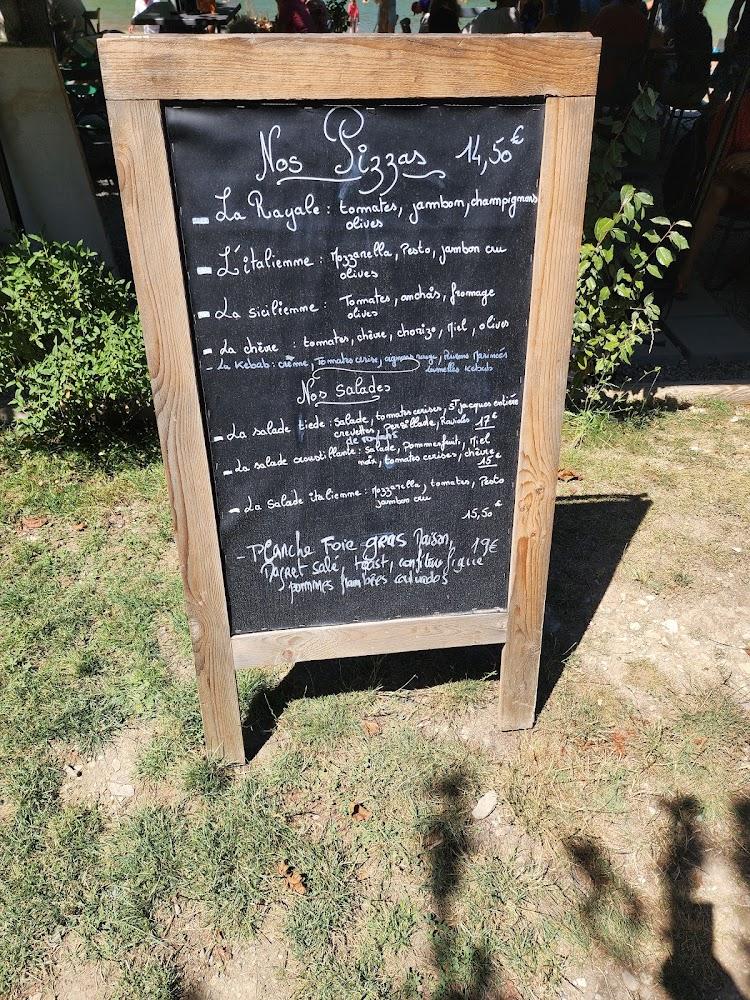 Nos Pizzas 14,50€
- La Royale : tomates, jambon, champignons
olives
- L'italiemme : Mozzarella, Pesto, jambon cru
olives
- La sicilienne : Tomates, anchois, fromage
olives
- La chèvre : tomates, chèvre, chorizo, Miel, olives
- La Kebab : crème, Tomates cerise, oignons rouge, Poivrons Marinés
lamelles Kebab
Nos Salades
- La salade tiede : Salade, tomates cerises, St jacques
crevettes, Persillade, Ravioles 17€
- La salade croustillante : Salade, Pommes fruit, Miel
noix, tomates cerises, chèvre
15€
- La Salade italiemme : Mozzarella, tomates, Pesto
jambon cru
15,50€
- Planche Foie gras Maison, 19€
Magret salé, toast, confiture figue
pommes flambées